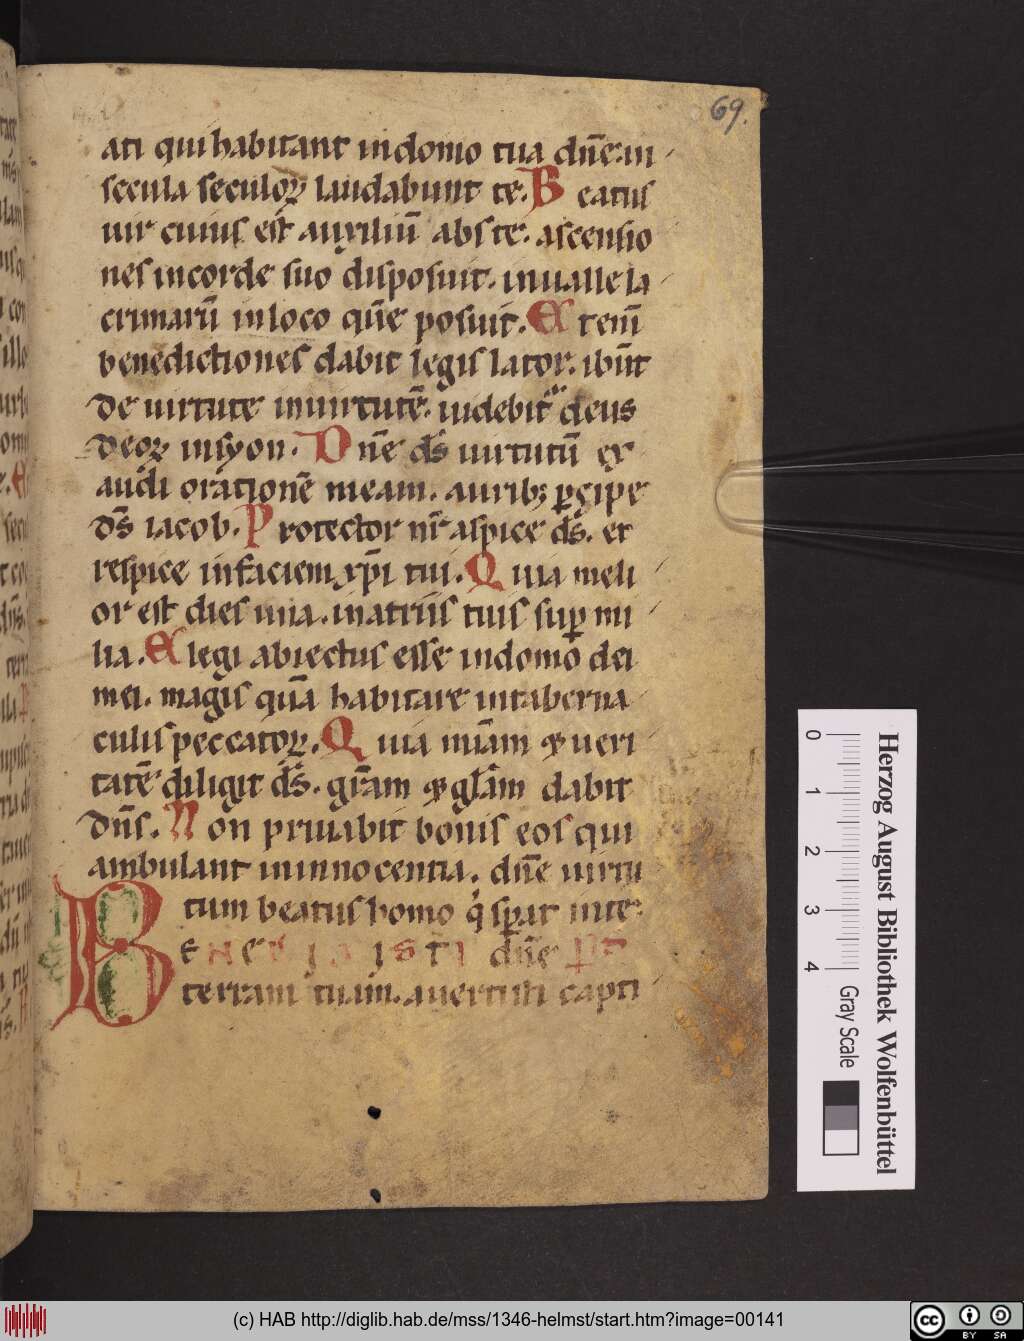 69.
ati qui habitant in domo tua dn̄e: in
secula seculoꝝ laudabunt te. Beatus
uir cuius est auxiliū abs te. ascensio
nes in corde suo disposuit. in ualle la
crimarū in loco quē posuit. Eteni̅
benedictiones dabit legis lator. ibu̅t
de uirtute in uirtutē. uidebit̄ deus
deoꝝ in syon. Dn̄e ds̄ uirtutū ex
audi orationē meam. aurib; ꝑcipe
ds̄ iacob. Protector nr̄ aspice ds̄. et
respice in faciem xp̄i tui. Quia meli
or est dies una. in atriis tuis suꝑ mi
lia. Elegi abiectus esse in domo dei
mei. magis quā habitare in taberna
culis peccatoꝝ. Quia mi̅am & ueri
tatē diligit ds̄. gr̄am & glam̄ dabit
dn̄s. Non priuabit bonis eos qui
ambulant in innocentia. dn̄e uirtu
tum beatus homo q̇ sꝑat in te:
Benedixisti dn̄e
terram tuam. auertisti capti
Herzog August Bibliothek Wolfenbüttel
0 1 2 3 4
Gray Scale
(c) HAB http://diglib.hab.de/mss/1346-helmst/start.htm?image=00141
cc BY SA